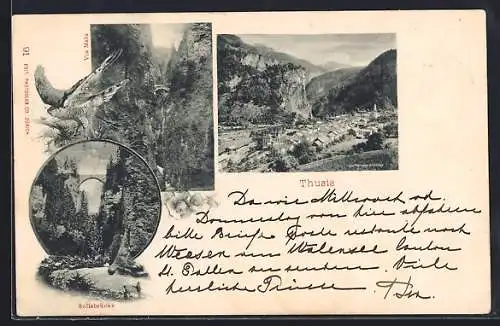 Via Mala
91
Thusis
Solisbrücke
Da wir Mittwoch od.
Donnerstag von hier abfahren
bitte Briefe Poste restante nach
Weesen am Walensee Canton
St. Gallen zu senden. Viele
herzliche Grüsse